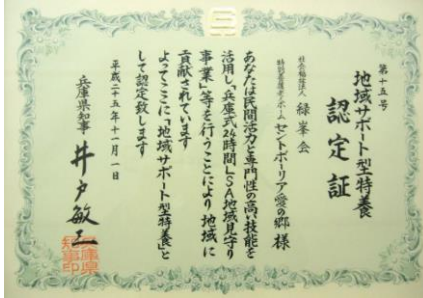 第十五号
地域サポート型特養
認定証
社会福祉法人 緑峯会
特別養護老人ホーム セントポーリア愛の郷 様
あなたは民間活力と専門性の高い技能を
活用し、「兵庫式24時間LSA地域見守り
事業」等を行うことにより 地域に
貢献されています
よってここに「地域サポート型特養」と
して認定致します
平成二十五年十一月一日
兵庫県知事 井戸敏三
兵庫県
知事印